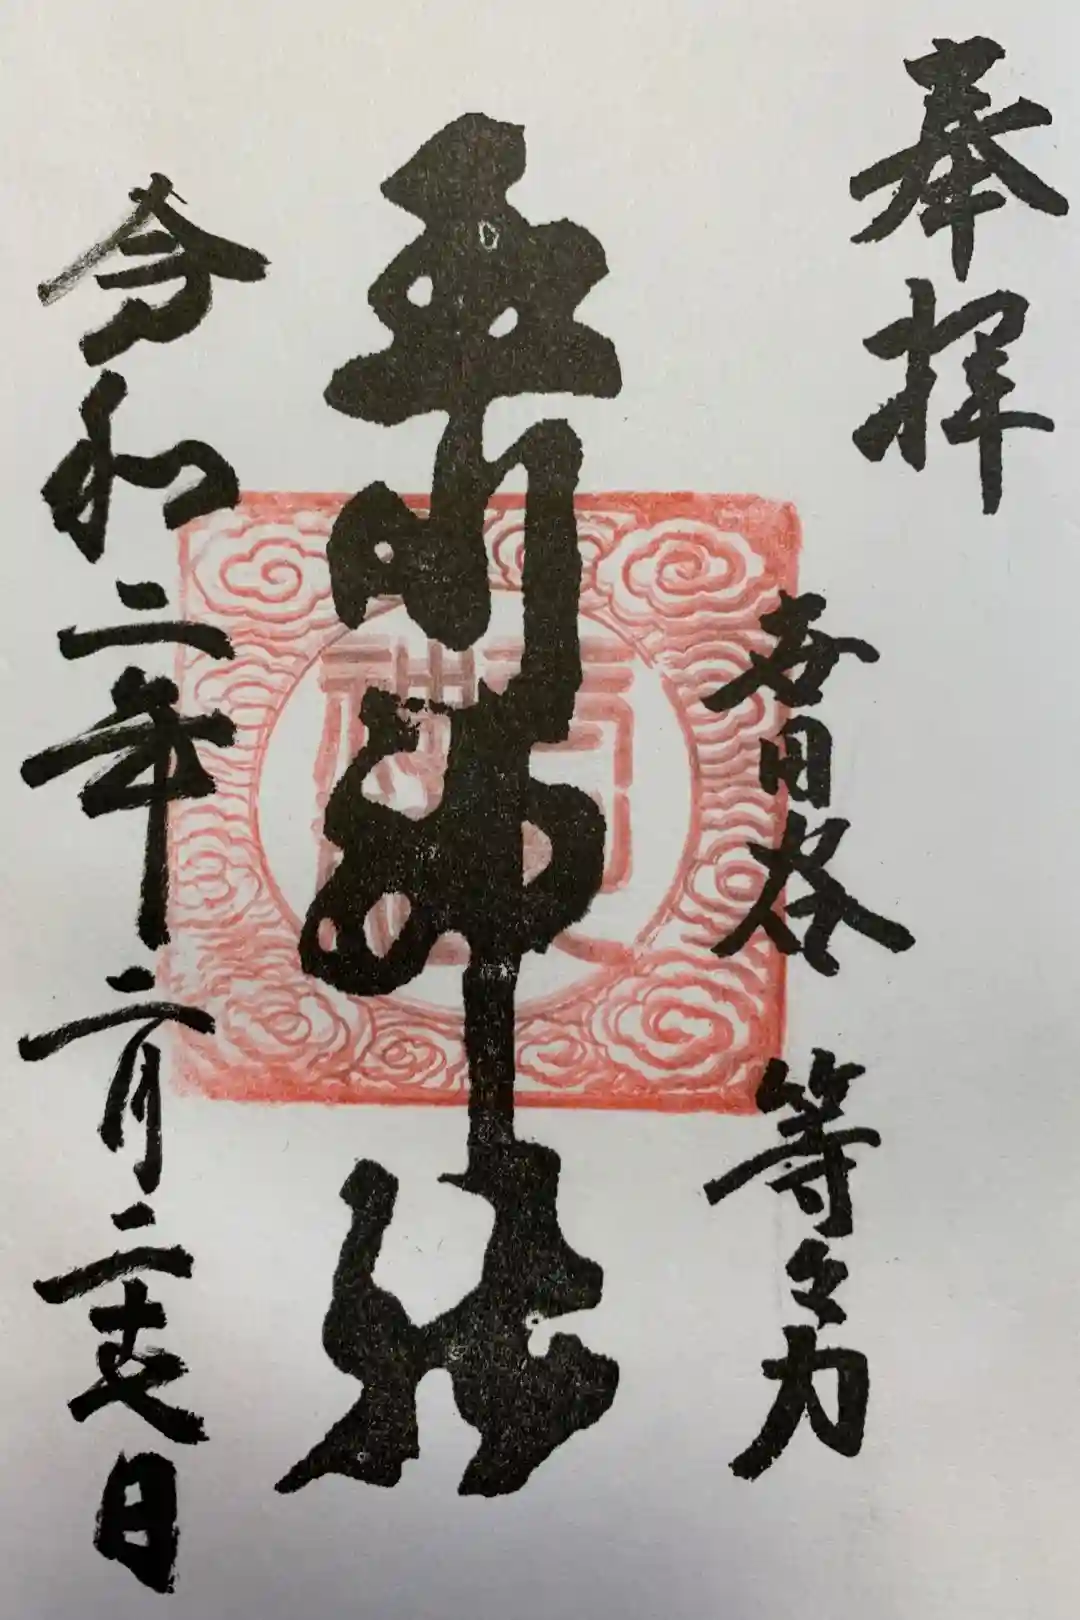 奉拝
世田谷 等々力
玉川神社
令和二年二月二十日